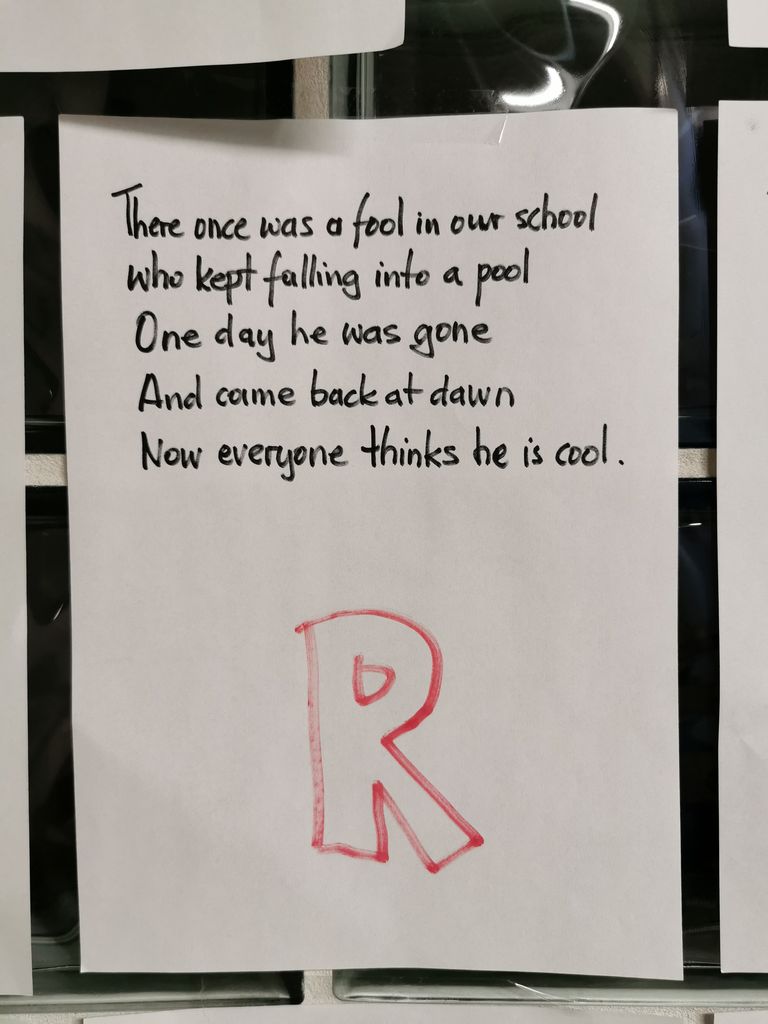 There once was a fool in our school
who kept falling into a pool
One day he was gone
And came back at dawn
Now everyone thinks he is cool.
R